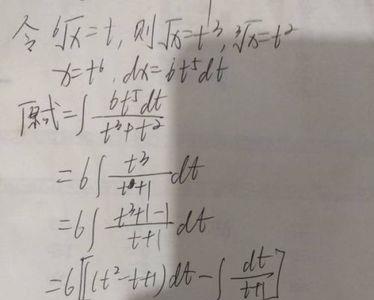 令 ⁶√x = t, 则 √x = t³, ³√x = t²
x = t⁶, dx = 6t⁵dt
原式 = ∫ 6t⁵dt / (t³ + t²)
= 6∫ t³/(t+1) dt
= 6∫ (t³+1-1)/(t+1) dt
= 6[∫(t²-t+1)dt - ∫ dt/(t+1)]